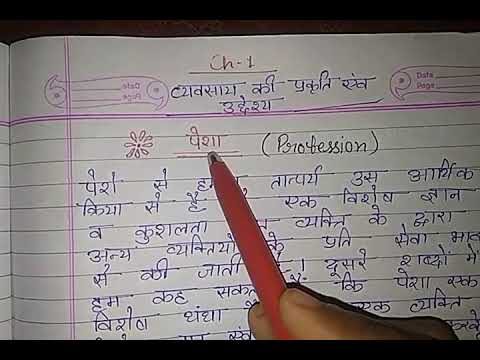 Ch-1
व्यवसाय की प्रकृति एंव
उद्देश्य
Date
Page
पेशा (Profession)
पेशे से तात्पर्य उस आर्थिक
क्रिया से है एक विशेष ज्ञान
व कुशलता व्यक्ति के द्वारा
अन्य व्यक्तियों के प्रति सेवा भाव
से की जाती है। दूसरे शब्दों में
हम कह सकते कि पेशा एक
विशेष धंधा व्यक्ति